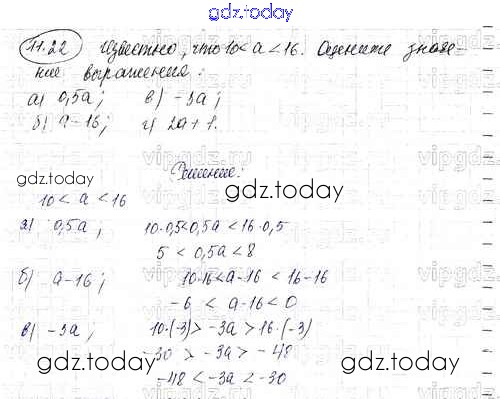 gdz.today
11.22 Известно, что 10 < a < 16. Оцените значе-
ние выражения:
а) 0,5a; в) -3a;
б) a-16; г) 2a+1.
Решение:
gdz.today
gdz.today
10 < a < 16
а) 0,5a; 10·0,5<0,5a<16·0,5
5 < 0,5a < 8
б) a-16; 10-16<a-16<16-16
-6 < a-16 < 0
в) -3a; 10·(-3)>-3a>16·(-3)
-30 > -3a > -48
gdz.today
gdz.today
-48 < -3a < -30